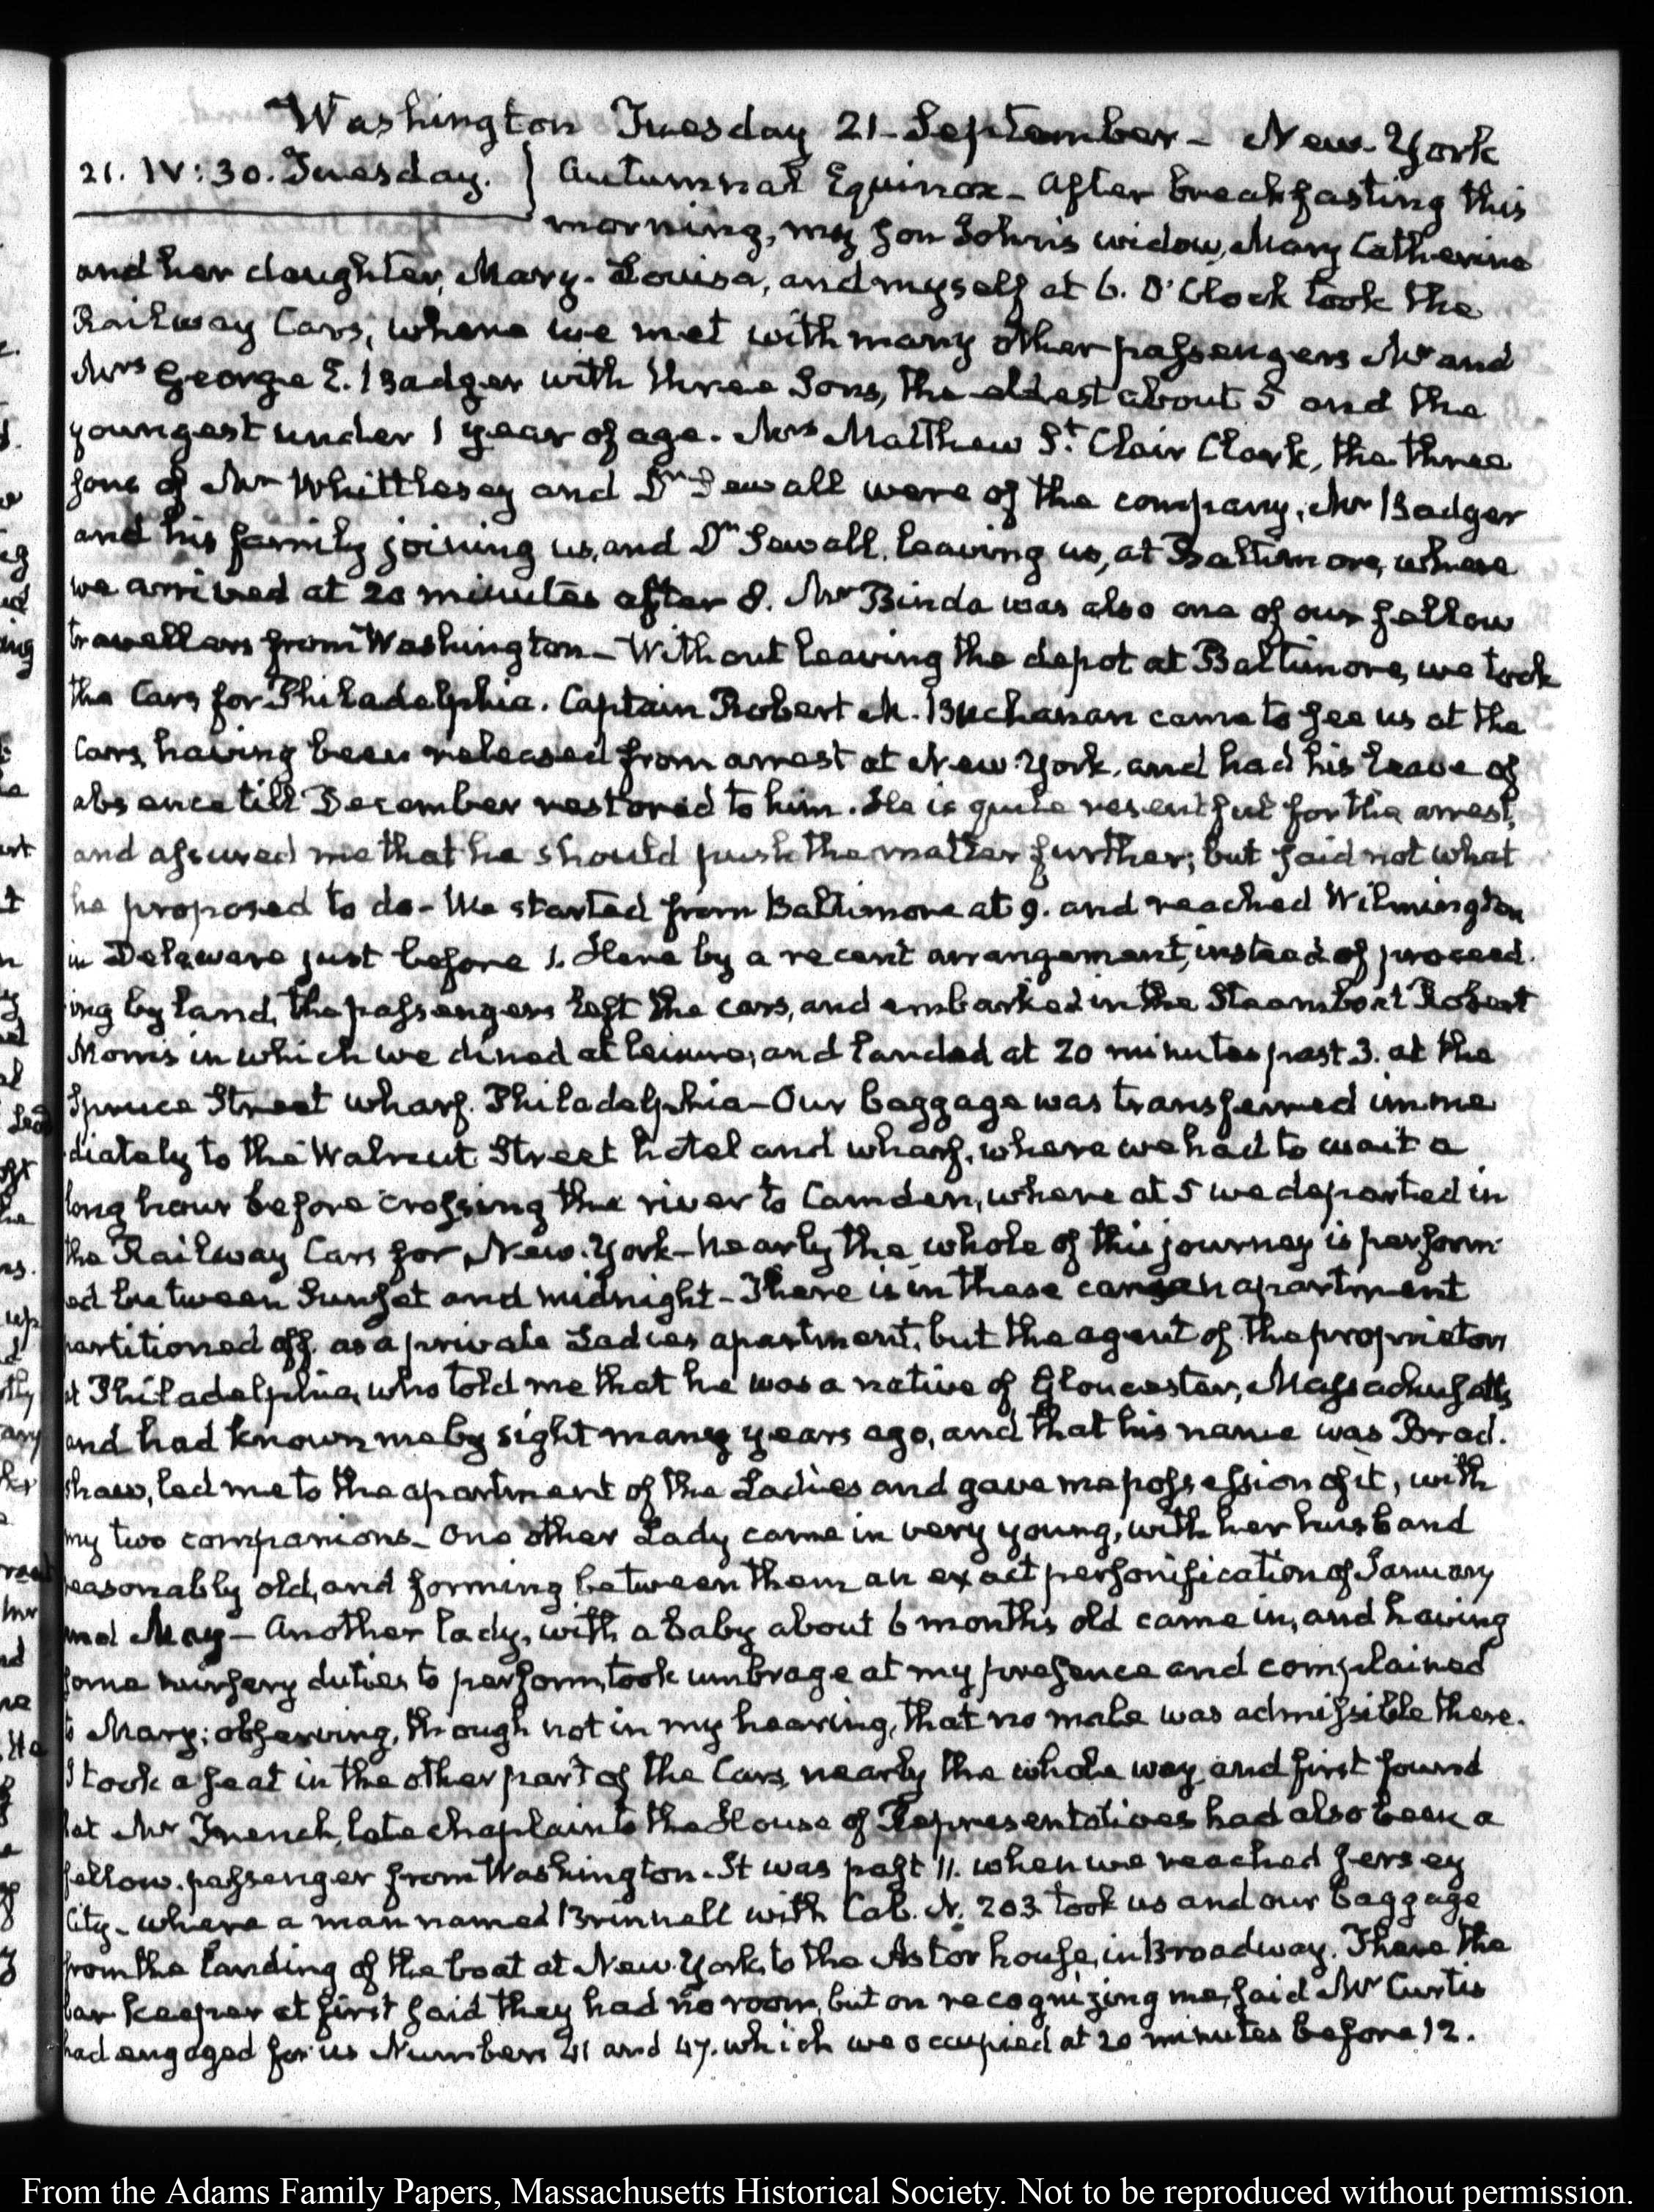 Washington Tuesday 21. September – New-York
21. IV:30. Tuesday. } Autumnal Equinox – After breakfasting this
morning, my Son John's widow, Mary Catherine
and her daughter, Mary-Louisa, and myself at 6. O'Clock took the
Railway Cars, where we met with many other passengers Mr and
Mrs George E. Badger with three Sons, the eldest about 5 and the
youngest under 1 year of age. Mrs Matthew St. Clair Clark, the three
sons of Mr Whittlesey and Dr Sewall were of the company, Mr Badger
and his family joining us, and Dr Sewall, leaving us, at Baltimore, where
we arrived at 20 minutes after 8. Mr Binda was also one of our fellow
travellers from Washington – Without leaving the depot at Baltimore, we took
the Cars for Philadelphia. Captain Robert M. Buchanan came to see us at the
Cars, having been released from arrest at New-York, and had his leave of
absence till December restored to him. He is quite resentful for the arrest,
and assured me that he should push the matter further; but said not what
he proposed to do – We started from Baltimore at 9. and reached Wilmington
in Delaware just before 1. Here by a recent arrangement, instead of proceed-
ing by land, the passengers left the cars, and embarked in the Steamboat Robert
Morris in which we dined at leisure, and landed at 20 minutes past 3. at the
Spruce Street wharf. Philadelphia – Our baggage was transferred imme
diately to the Walnut Street hotel and wharf, where we had to wait a
long hour before crossing the river to Camden, where at 5 we departed in
the Railway Cars for New-York – nearly the whole of this journey is perform-
ed between Sunset and midnight – There is in these cars an apartment
partitioned off as a private Ladies apartment, but the agent of the proprietors
at Philadelphia, who told me that he was a native of Gloucester, Massachusetts
and had known me by sight many years ago, and that his name was Brad-
shaw, led me to the apartment of the Ladies and gave me possession of it, with
my two companions – One other Lady came in very young, with her husband
reasonably old, and forming between them an exact personification of January
and May – Another lady, with a baby about 6 months old came in, and having
some nursery duties to perform, took umbrage at my presence and complained
to Mary; observing, though not in my hearing, that no male was admissible there.
I took a seat in the other part of the Cars, nearly the whole way, and first found
that Mr French, late chaplain to the House of Representatives had also been a
fellow-passenger from Washington. It was past 11. when we reached Jersey
City – where a man named Brinnell with Cab. N. 203 took us and our baggage
from the landing of the boat at New-York, to the Astor house, in Broadway. There the
bar keeper at first said they had no room, but on recognizing me, said Mr Curtis
had engaged for us Numbers 41 and 47. which we occupied at 20 minutes before 12.
From the Adams Family Papers, Massachusetts Historical Society. Not to be reproduced without permission.